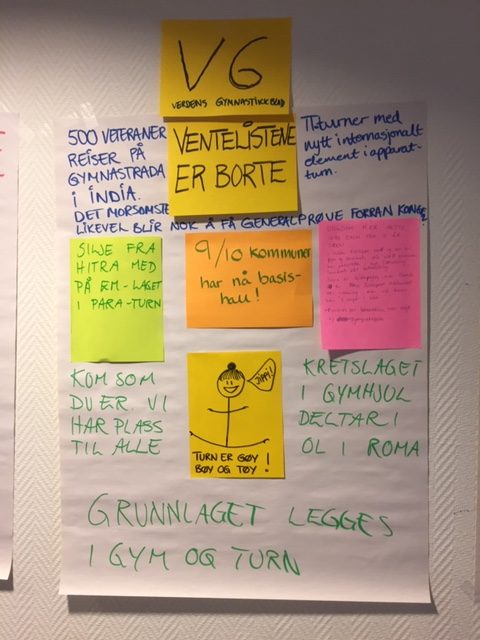 VG
VERDENS GYMNASTIKKBLAD
VENTELISTENE
ER BORTE
500 VETERANER
REISER PÅ
GYMNASTRADA
I INDIA.
DET MORSOMSTE
LIKEVEL BLIR NOK Å FÅ GENERALPRØVE FORRAN KONGE
TT-turner med
nytt internasjonalt
element i apparat-
turn.
SILJE FRA
HITRA MED
PÅ EM-LAGET
I PARA-TURN
9/10 kommuner
har nå basis-
hall!
KOM SOM
DU ER. VI
HAR PLASS
TIL ALLE
JIPPI!
TURN ER GØY!
BØY OG TØY
KRETSLAGET
I GYMHJUL
DELTAR I
OL I ROMA
GRUNNLAGET LEGGES
I GYM OG TURN